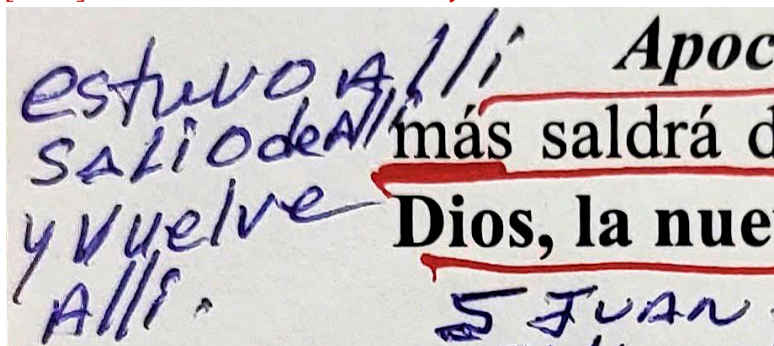 estuvo Alli
Salio de Alli
y vuelve
Alli.
Apoc
más saldrá d
Dios, la nue
5 JUAN